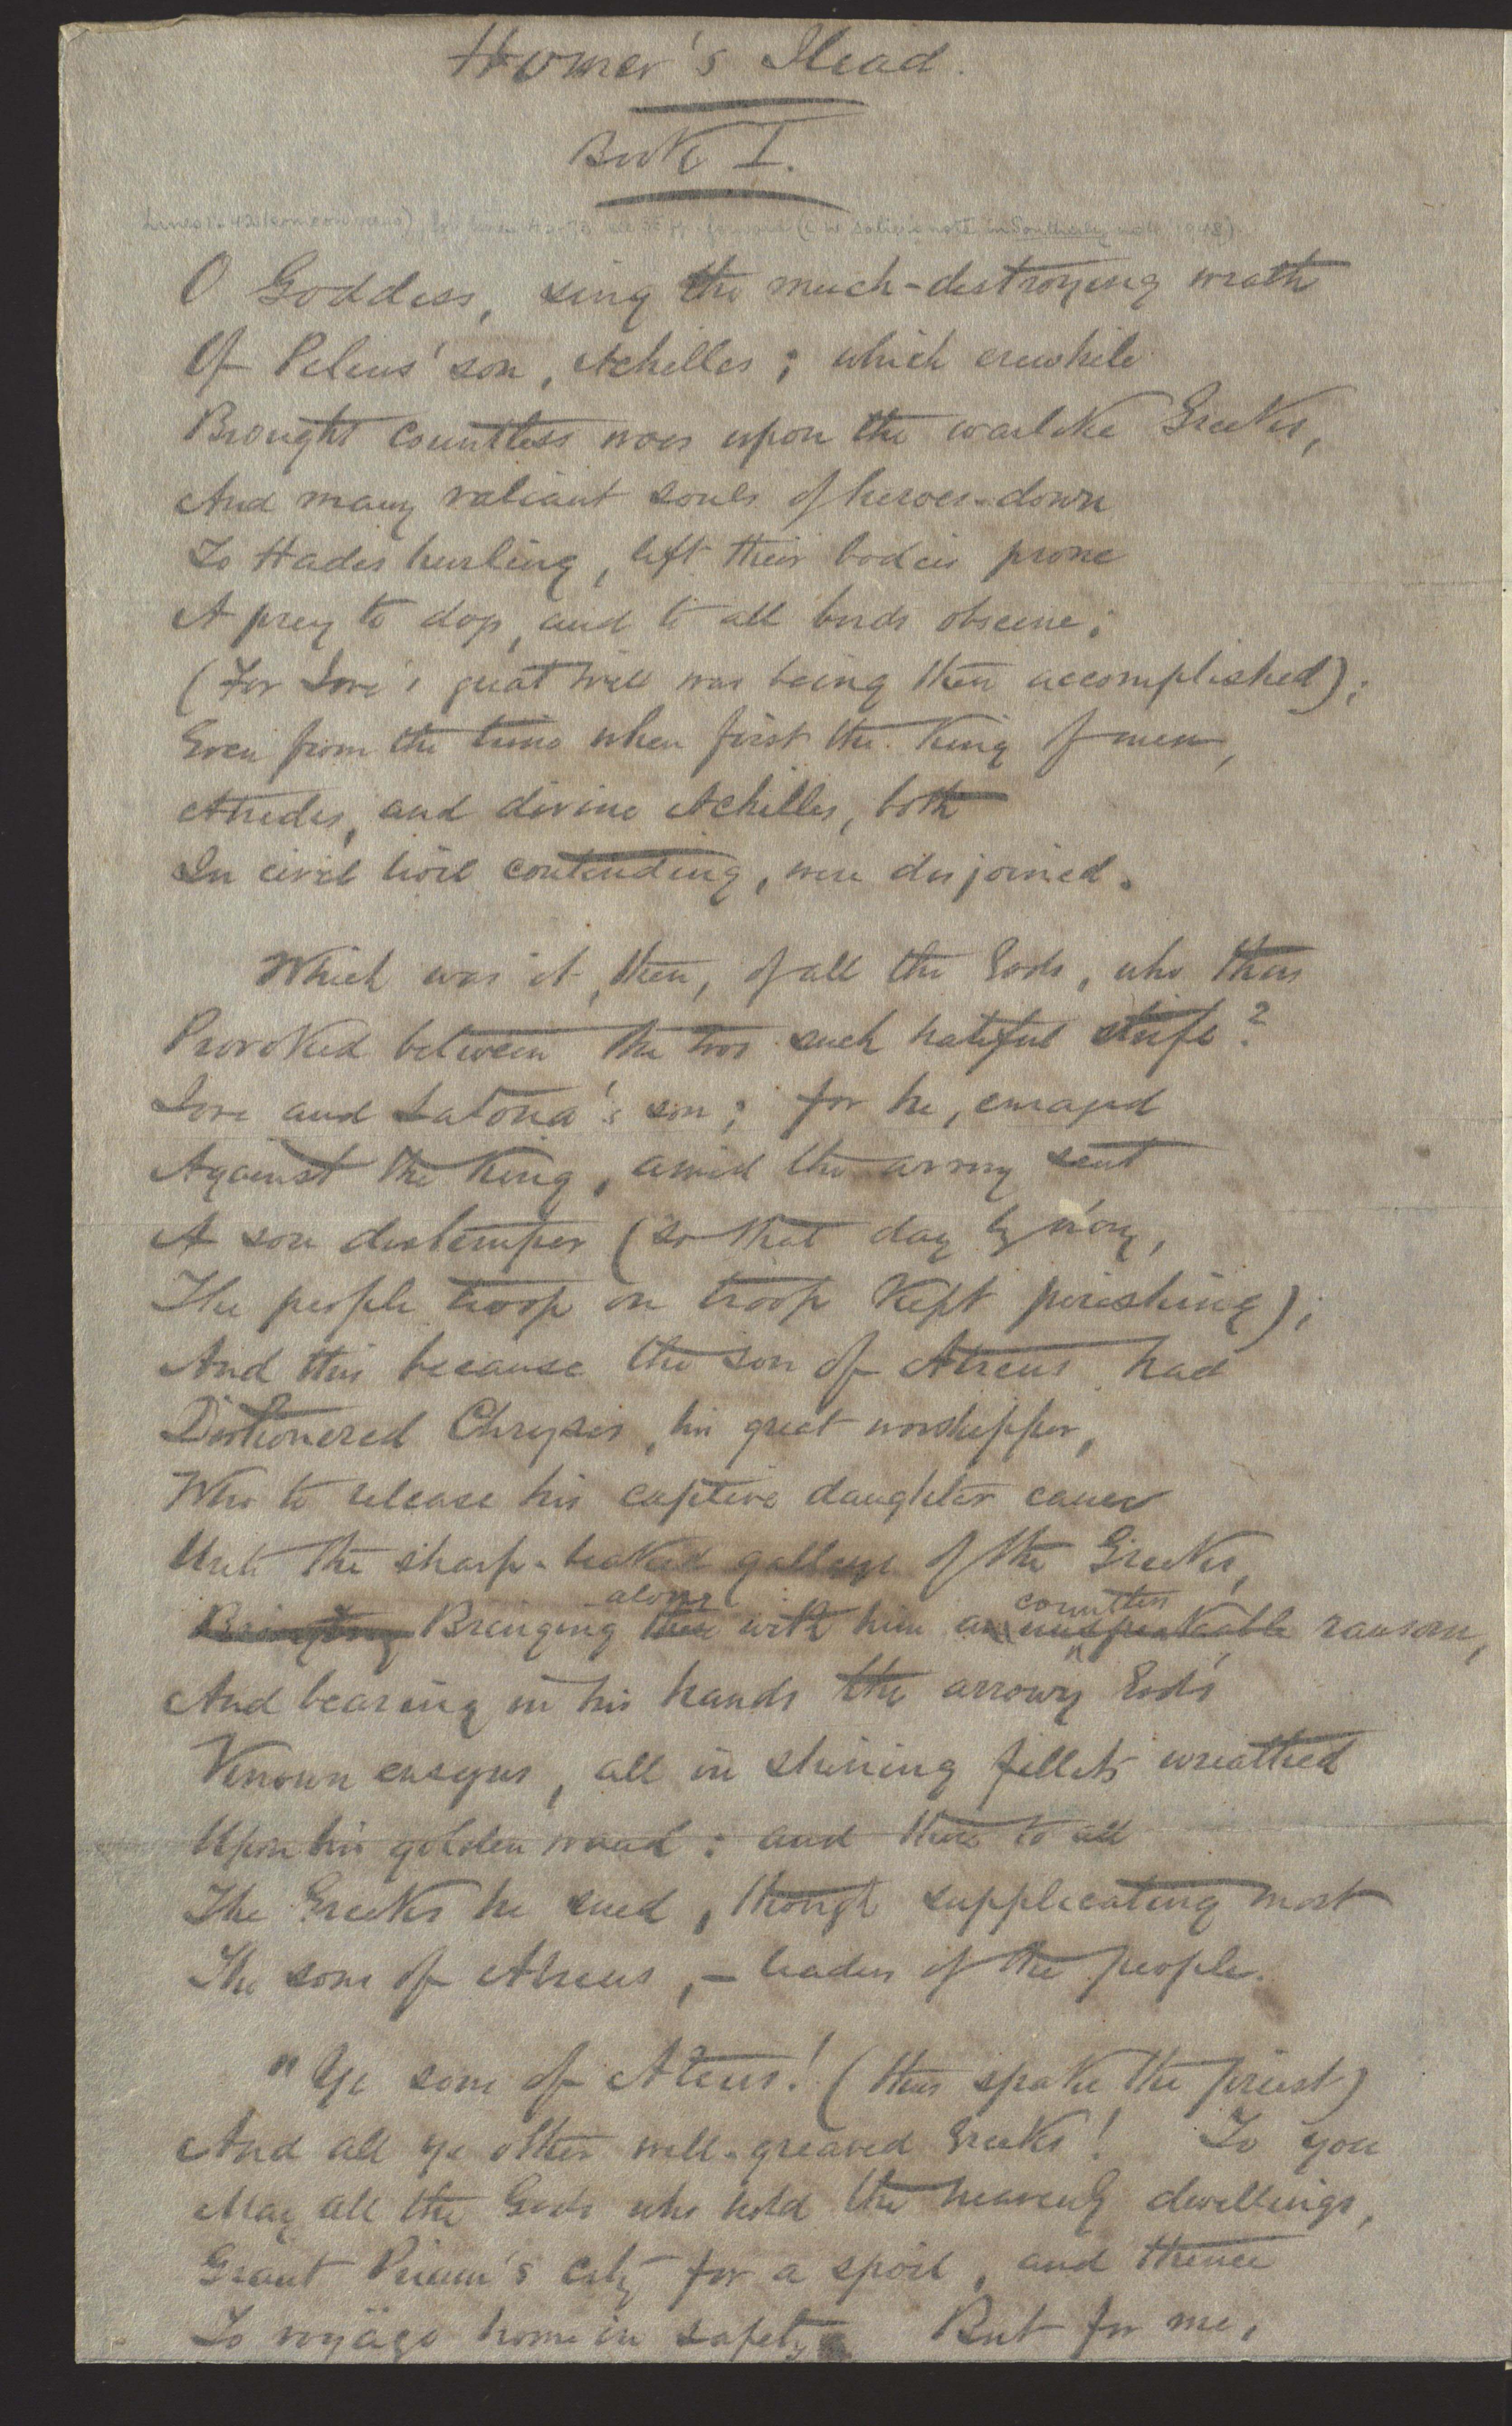 Homer's Iliad.
Book I.
O Goddess, sing the much-destroying wrath
Of Peleus' son, Achilles; which erewhile
Brought countless woes upon the warlike Greeks,
And many valiant souls of heroes down
To Hades hurling, left their bodies prone
A prey to dogs, and to all birds obscene;
(For Jove's great will was being then accomplished);
Even from the time when first the King of men,
Atrides, and divine Achilles, both
In civil broil contending, were disjoined.
Which was it, then, of all the Gods, who thus
Provoked between the two such hateful strife?
Jove and Latona's son; for he, enraged
Against the King, amid the army sent
A sore distemper (so that day by day,
The people troop on troop kept perishing);
And this because the son of Atreus had
Dishonered Chryses, his great worshipper,
Who to release his captive daughter came
Unto the sharp-beaked galleys of the Greeks,
along countless
Bringing Bringing with him an unspeakable ransom,
And bearing in his hands the arrowy God's
Known ensigns, all in shining fillets wreathed
Upon his golden wand: and there to all
The Greeks he sued, though supplicating most
The sons of Atreus, – leaders of the people.
"Ye sons of Atreus! (thus spake the priest)
And all ye other well-greaved Greeks! To you
May all the Gods who hold the heavenly dwellings,
Grant Priam's city for a spoil, and thence
To voyage home in safety But for me,